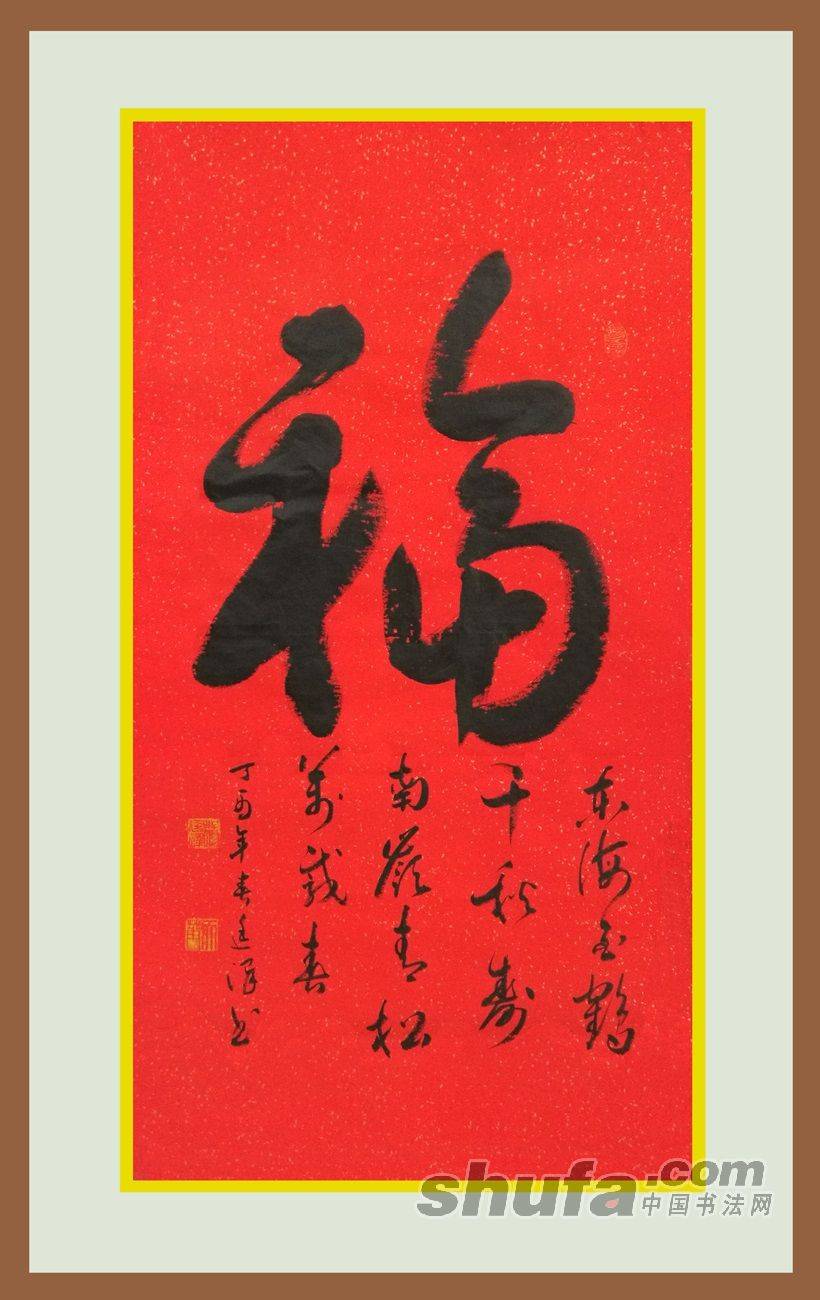 福
东海玉鹤
千秋寿
南嶺青松
萬載春
丁酉年春书
shufa.com
中国书法网